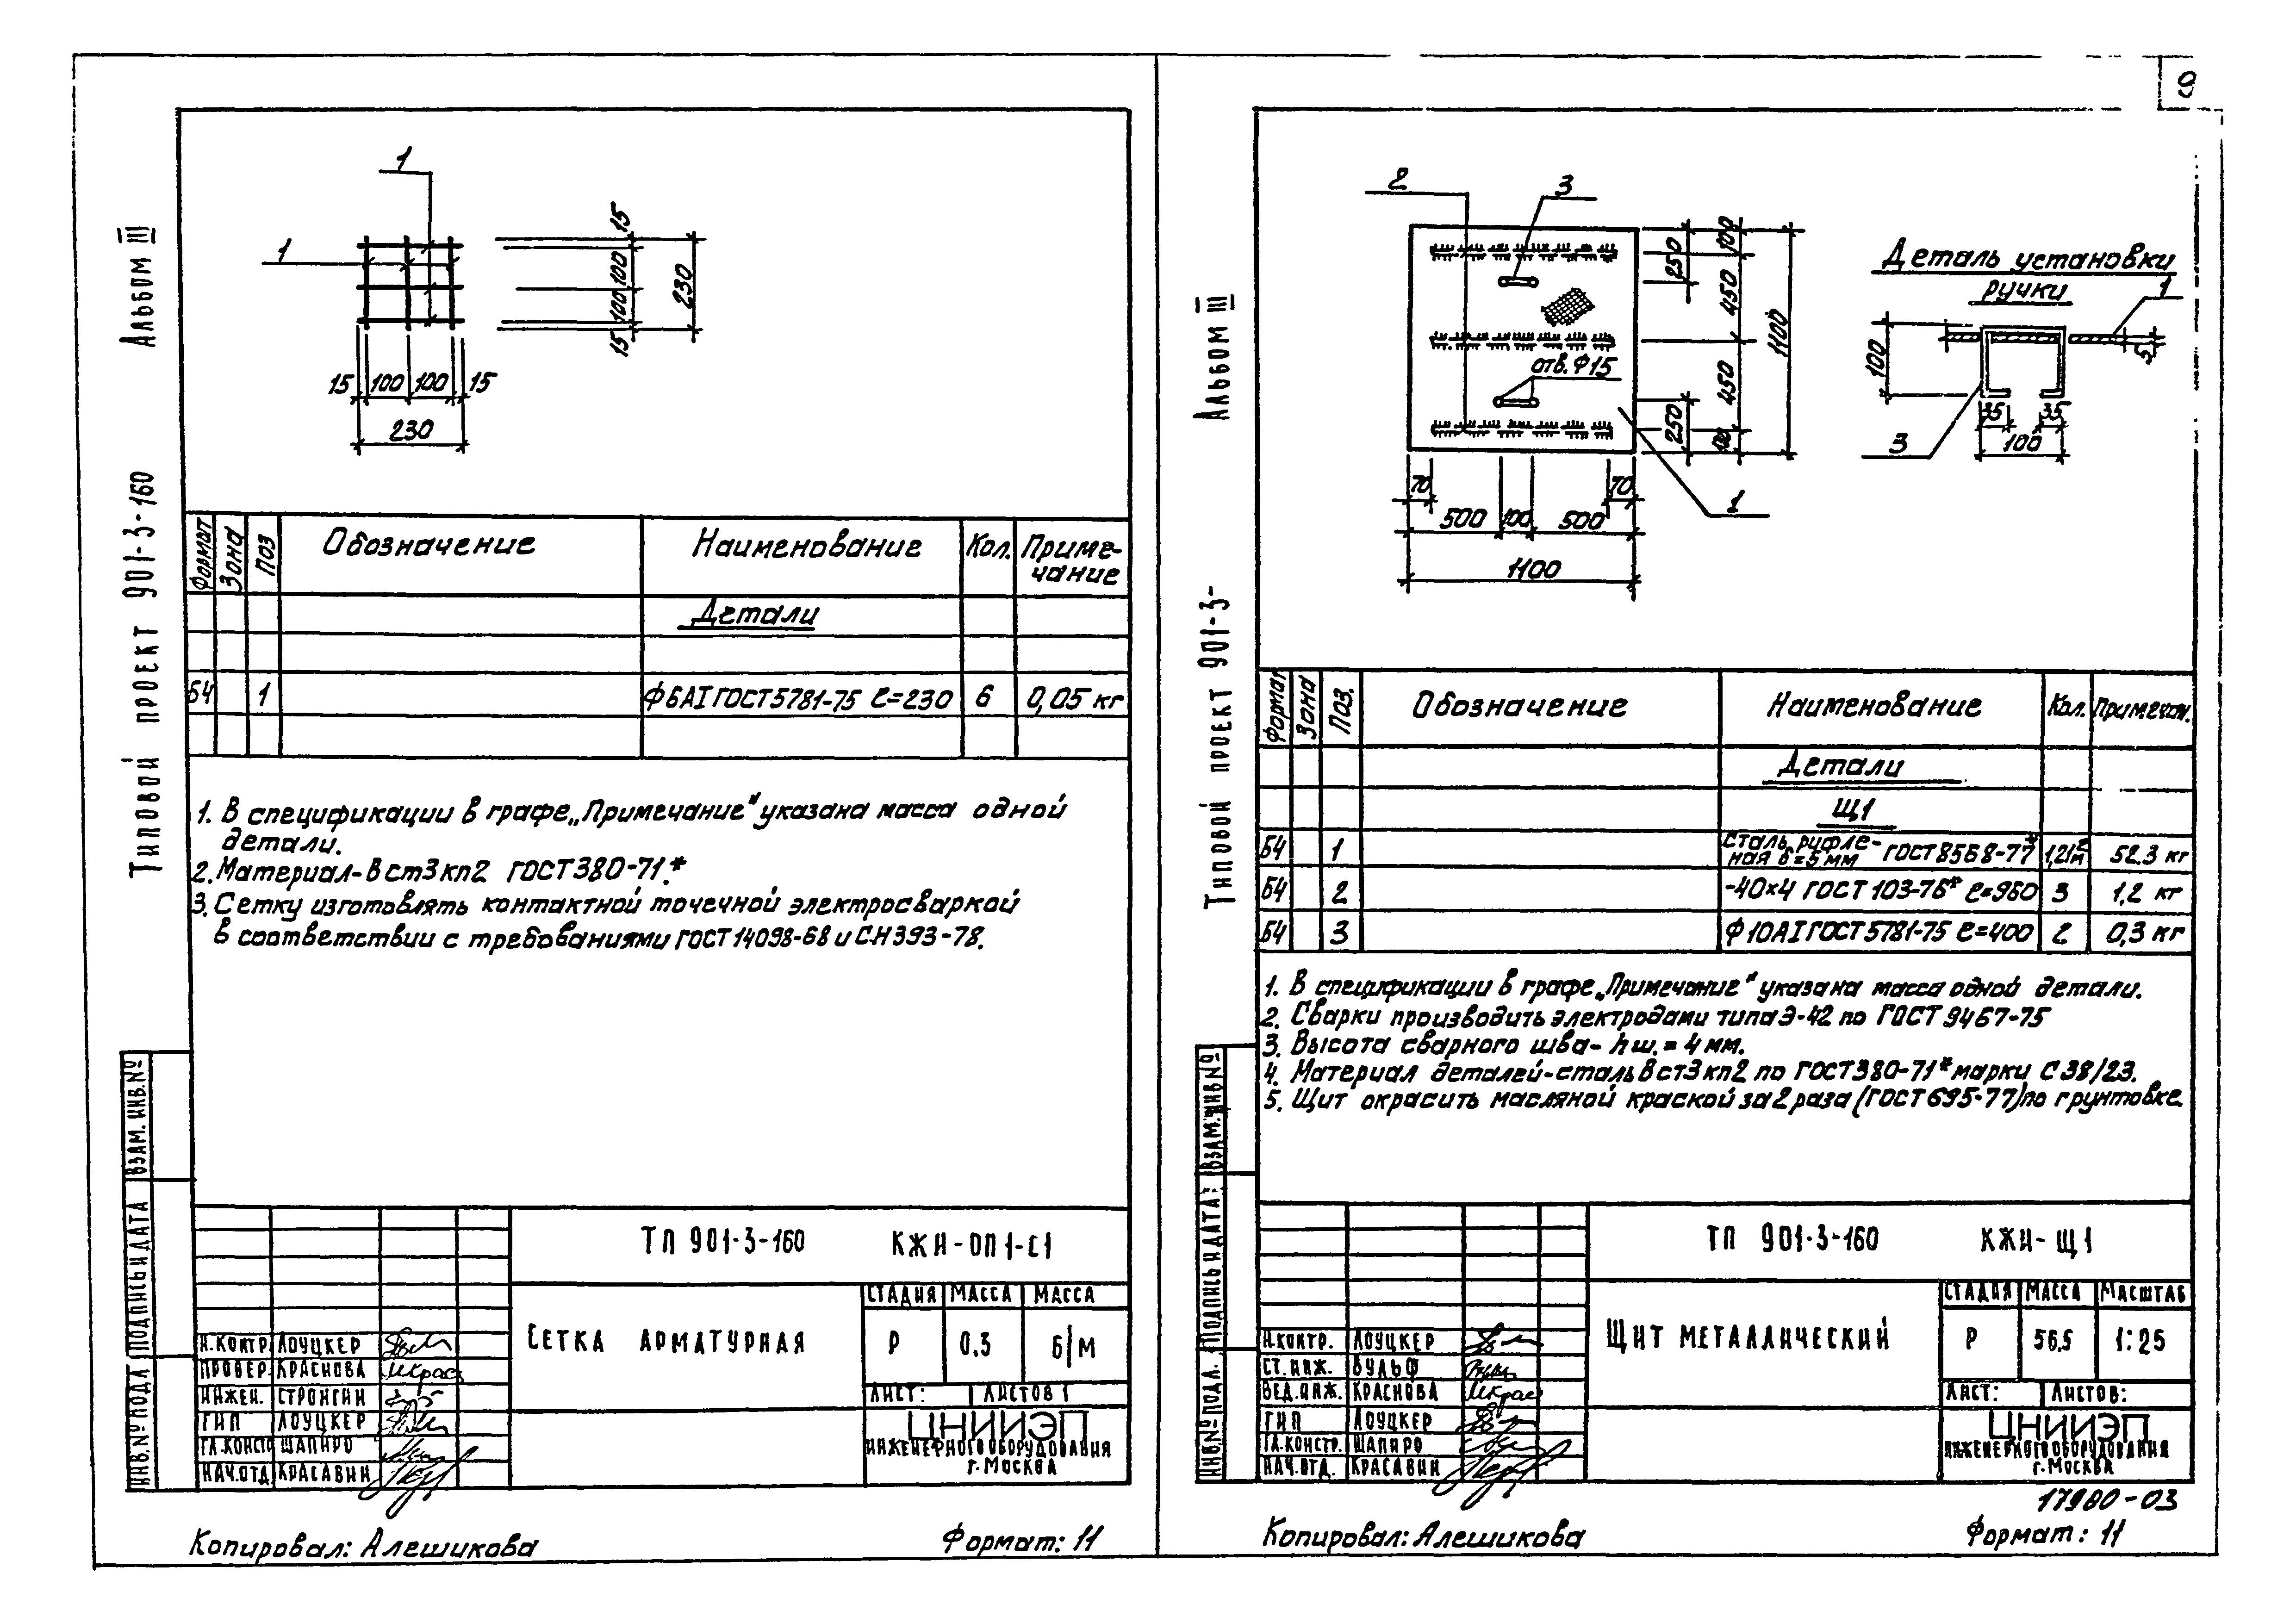 9
Альбом III
Типовой проект 901-3-160
1
1
15
100
100
15
230
15 100 100 15
230
Формат Зона Поз Обозначение Наименование Кол. Приме-
чание
Детали
Б4 1 Ф6АI ГОСТ 5781-75 ℓ=230 6 0,05 кг
1. В спецификации в графе „Примечание" указана масса одной
детали.
2. Материал- Вст3кп2 ГОСТ 380-71.*
3. Сетку изготовлять контактной точечной электросваркой
в соответствии с требованиями ГОСТ 14098-68 и СН 393-78.
ВЗАМ. ИНВ.№
ПОДПИСЬ И ДАТА
ИНВ.№ ПОДЛ
ТП 901-3-160 КЖИ-ОП1-С1
СЕТКА АРМАТУРНАЯ
СТАДИЯ МАССА МАССА
Р 0.3 Б/М
ЛИСТ: ЛИСТОВ 1
Н.КОНТР. ЛОУЦКЕР
ПРОВЕР. КРАСНОВА
ИНЖЕН. СТРОНГИН
ГИП ЛОУЦКЕР
ГЛ.КОНСТР ШАПИРО
НАЧ.ОТД КРАСАВИН
ЦНИИЭП
ИНЖЕНЕРНОГО ОБОРУДОВАНИЯ
Г. МОСКВА
Копировал: Алешикова Формат: 11
Альбом III
Типовой проект 901-3-
2
3
отв. Ф15
1
250
100
450
450
1100
250
100
70 70
500 100 500
1100
Деталь установки
ручки
1
100
5
3
35 35
100
Формат Зона Поз. Обозначение Наименование Кол. Примечан.
Детали
Щ1
Б4 1 Сталь рифле-
ная δ=5мм ГОСТ 8568-77* 1,21м² 52.3 кг
Б4 2 -40×4 ГОСТ 103-76* ℓ=960 3 1,2 кг
Б4 3 Ф10АI ГОСТ 5781-75 ℓ=400 2 0,3 кг
1. В спецификации в графе „Примечание" указана масса одной детали.
2. Сварки производить электродами типа Э-42 по ГОСТ 9467-75
3. Высота сварного шва- hш.= 4 мм.
4. Материал деталей-сталь Вст3кп2 по ГОСТ 380-71* марки С 38/23.
5. Щит окрасить масляной краской за 2 раза (ГОСТ 695-77) по грунтовке.
ВЗАМ.ИНВ.№
ПОДПИСЬ И ДАТА:
ИНВ.№ ПОДЛ.
ТП 901-3-160 КЖИ-Щ1
ЩИТ МЕТАЛЛИЧЕСКИЙ
СТАДИЯ МАССА МАСШТАБ
Р 56.5 1:25
ЛИСТ: ЛИСТОВ:
Н.КОНТР. ЛОУЦКЕР
СТ.ИНЖ. ВУЛЬФ
ВЕД.ИНЖ. КРАСНОВА
ГИП ЛОУЦКЕР
ГЛ.КОНСТР. ШАПИРО
НАЧ.ОТД. КРАСАВИН
ЦНИИЭП
ИНЖЕНЕРНОГО ОБОРУДОВАНИЯ
Г. МОСКВА
17980-03
Копировал: Алешикова Формат: 11